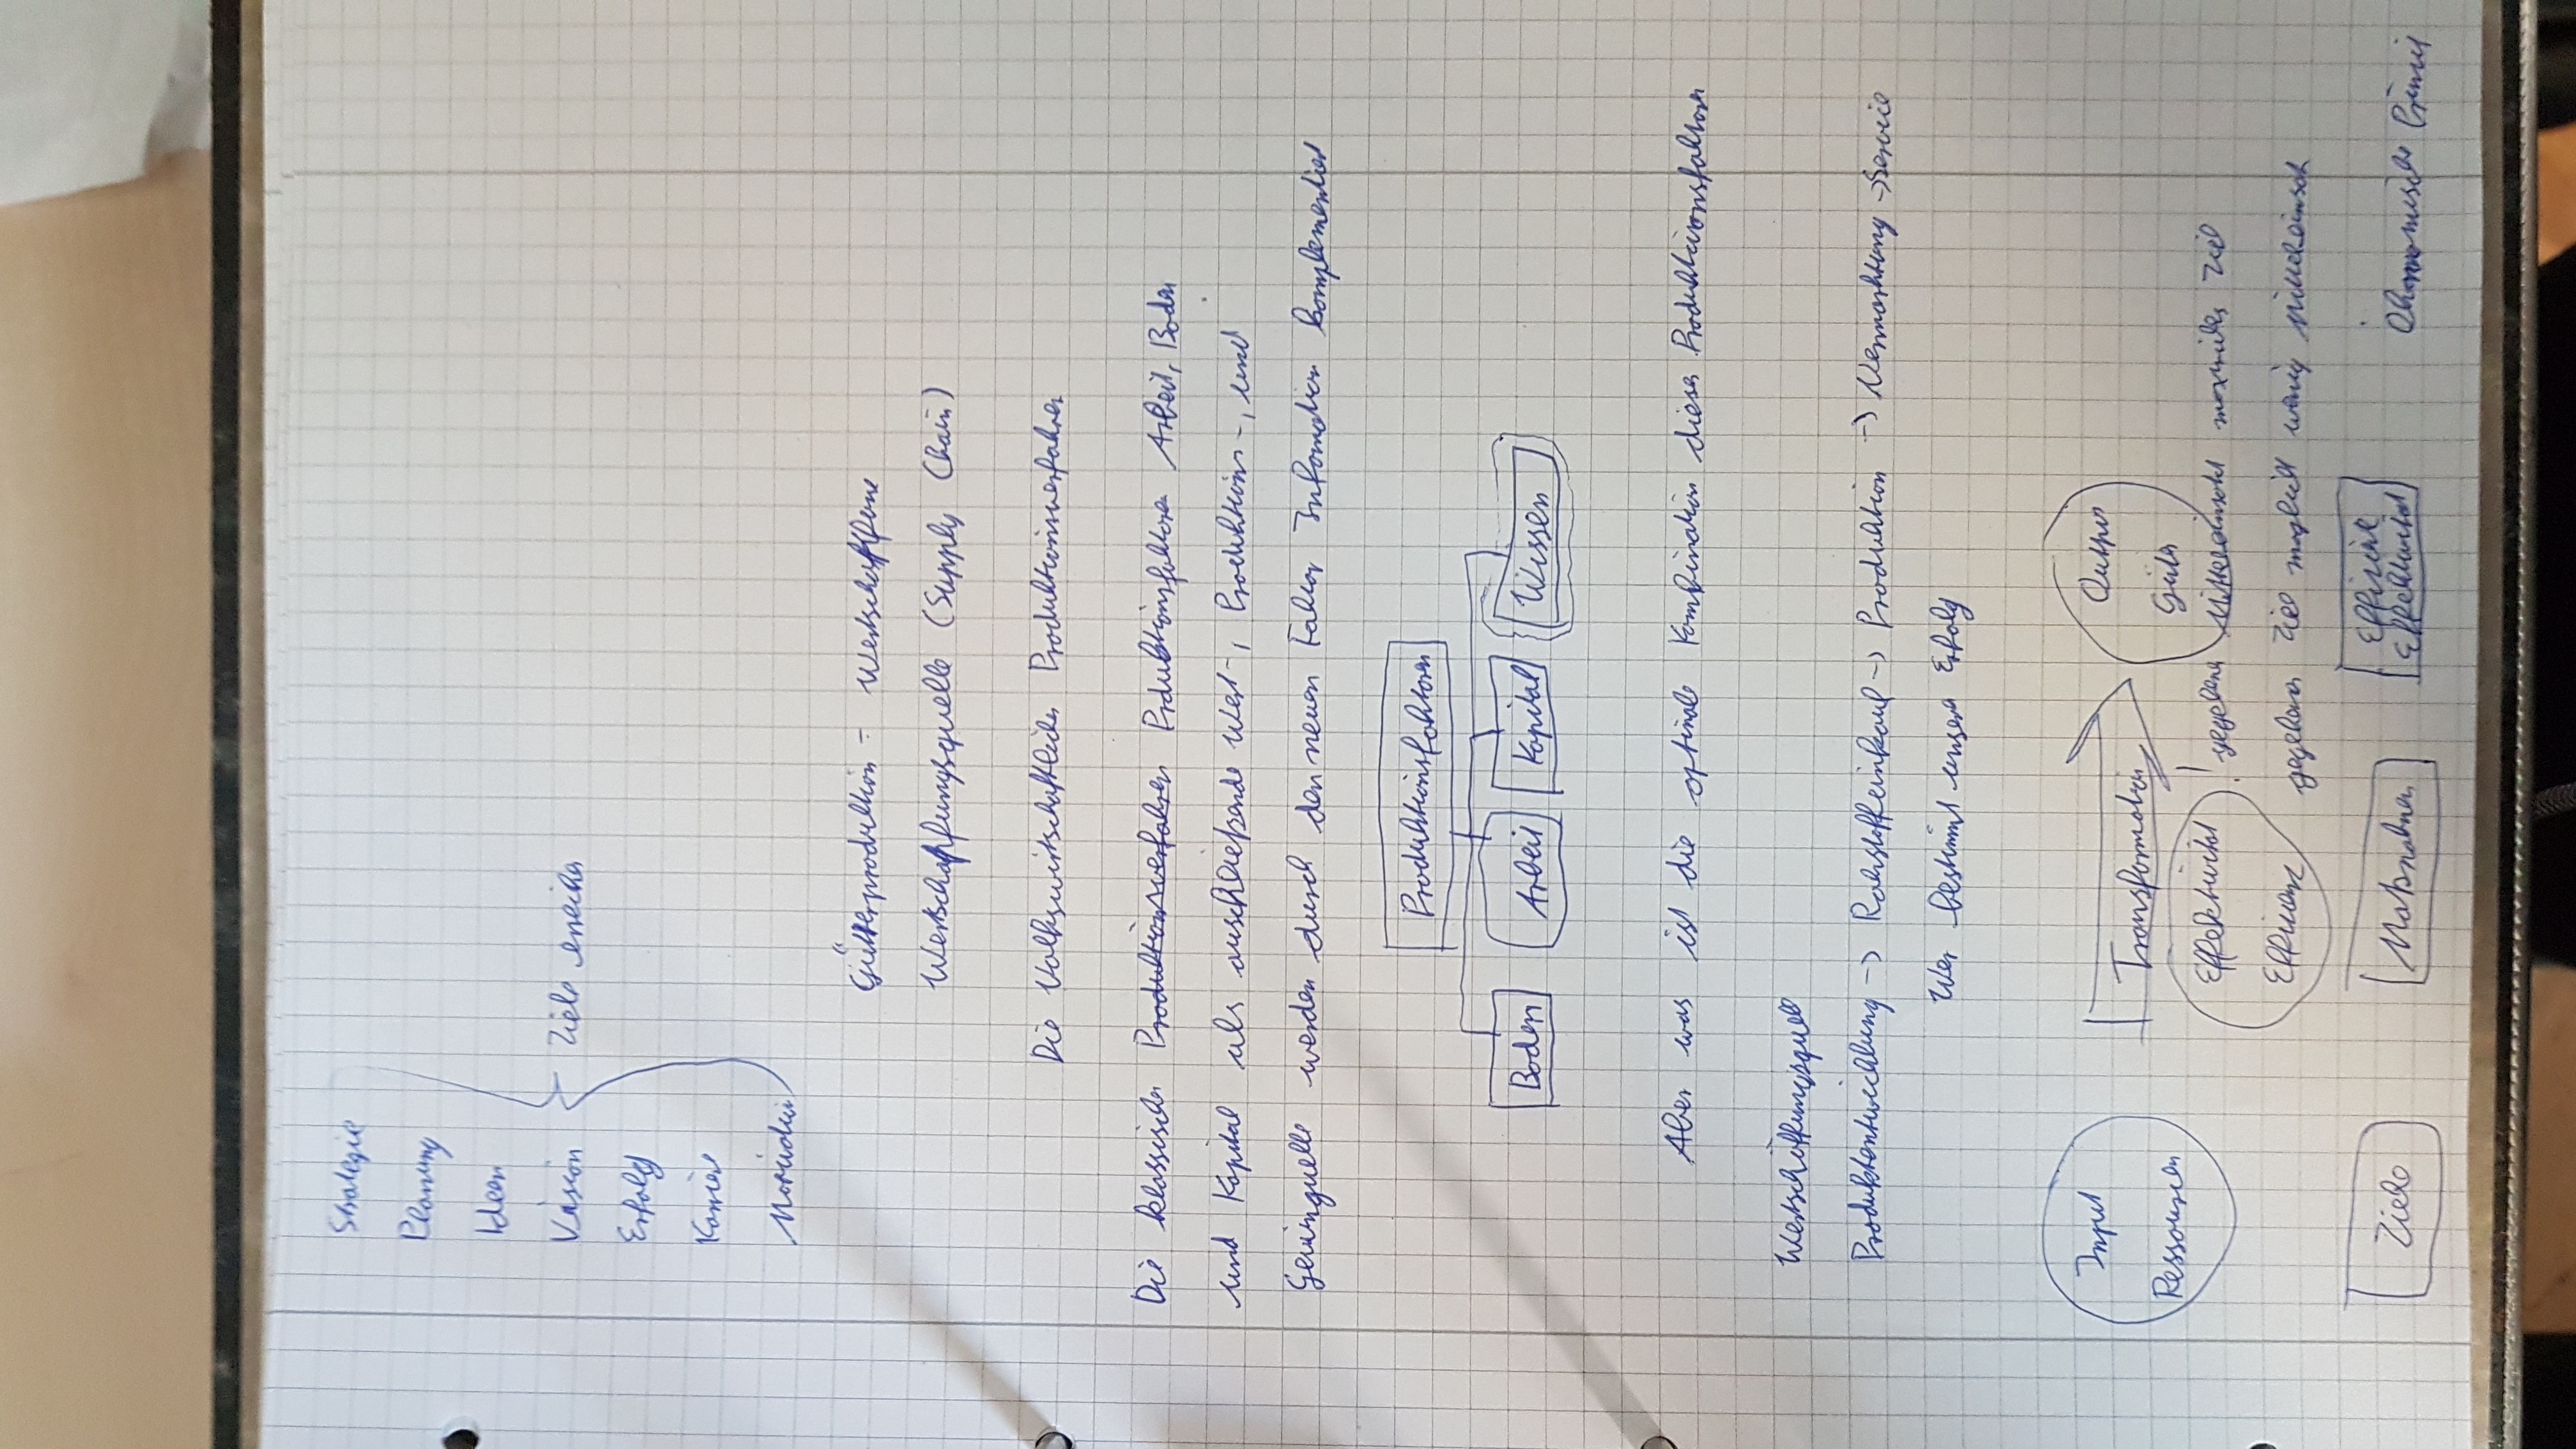 Strategie
Planung
Ideen
Vision
Ziele erreichen
Erfolg
Karriere
Güterproduktion -
Wertschöpfungsquelle (Supply Chain)
Die Volkswirtschaftlichen Produktionsverfahren
Die klassischen Produktionsverfahren Produktionsfaktoren Arbeit, Boden
und Kapital als auschließende Wert-, Produktions-, und
Gewinnquelle werden durch den neuen Faktor Information komplementiert
Produktionsfaktoren
Boden Arbeit Kapital Wissen
Aber was ist die optimale Kombination dieser Produktionsfaktoren
Wertschöffungsquell
Produktentwicklung -> Rohstoffeinkauf -> Produktion -> Vermarktung -> Service
Wer bestimmt unseren Erfolg
Input Output
Transformation
Ressourcen Güter
Effektivität ! gegebener Mitteleinsatz maximales Ziel
Effizienz gegebenes Ziel möglichst wenig Mitteleinsatz
Effizienz
Ziele Maßnahmen Effektivität Ökonomische Prinzip